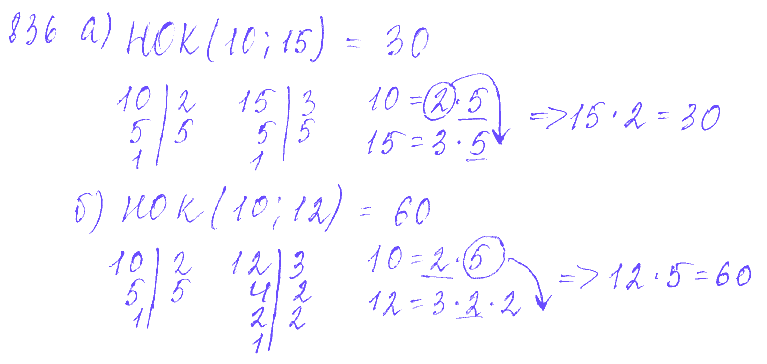 836 а) НОК(10; 15) = 30
10 | 2 15 | 3 10 = 2 · 5
5 | 5 5 | 5 15 = 3 · 5 => 15 · 2 = 30
1 | 1 |
б) НОК(10; 12) = 60
10 | 2 12 | 3 10 = 2 · 5
5 | 5 4 | 2 12 = 3 · 2 · 2 => 12 · 5 = 60
1 | 2 | 2
1 |